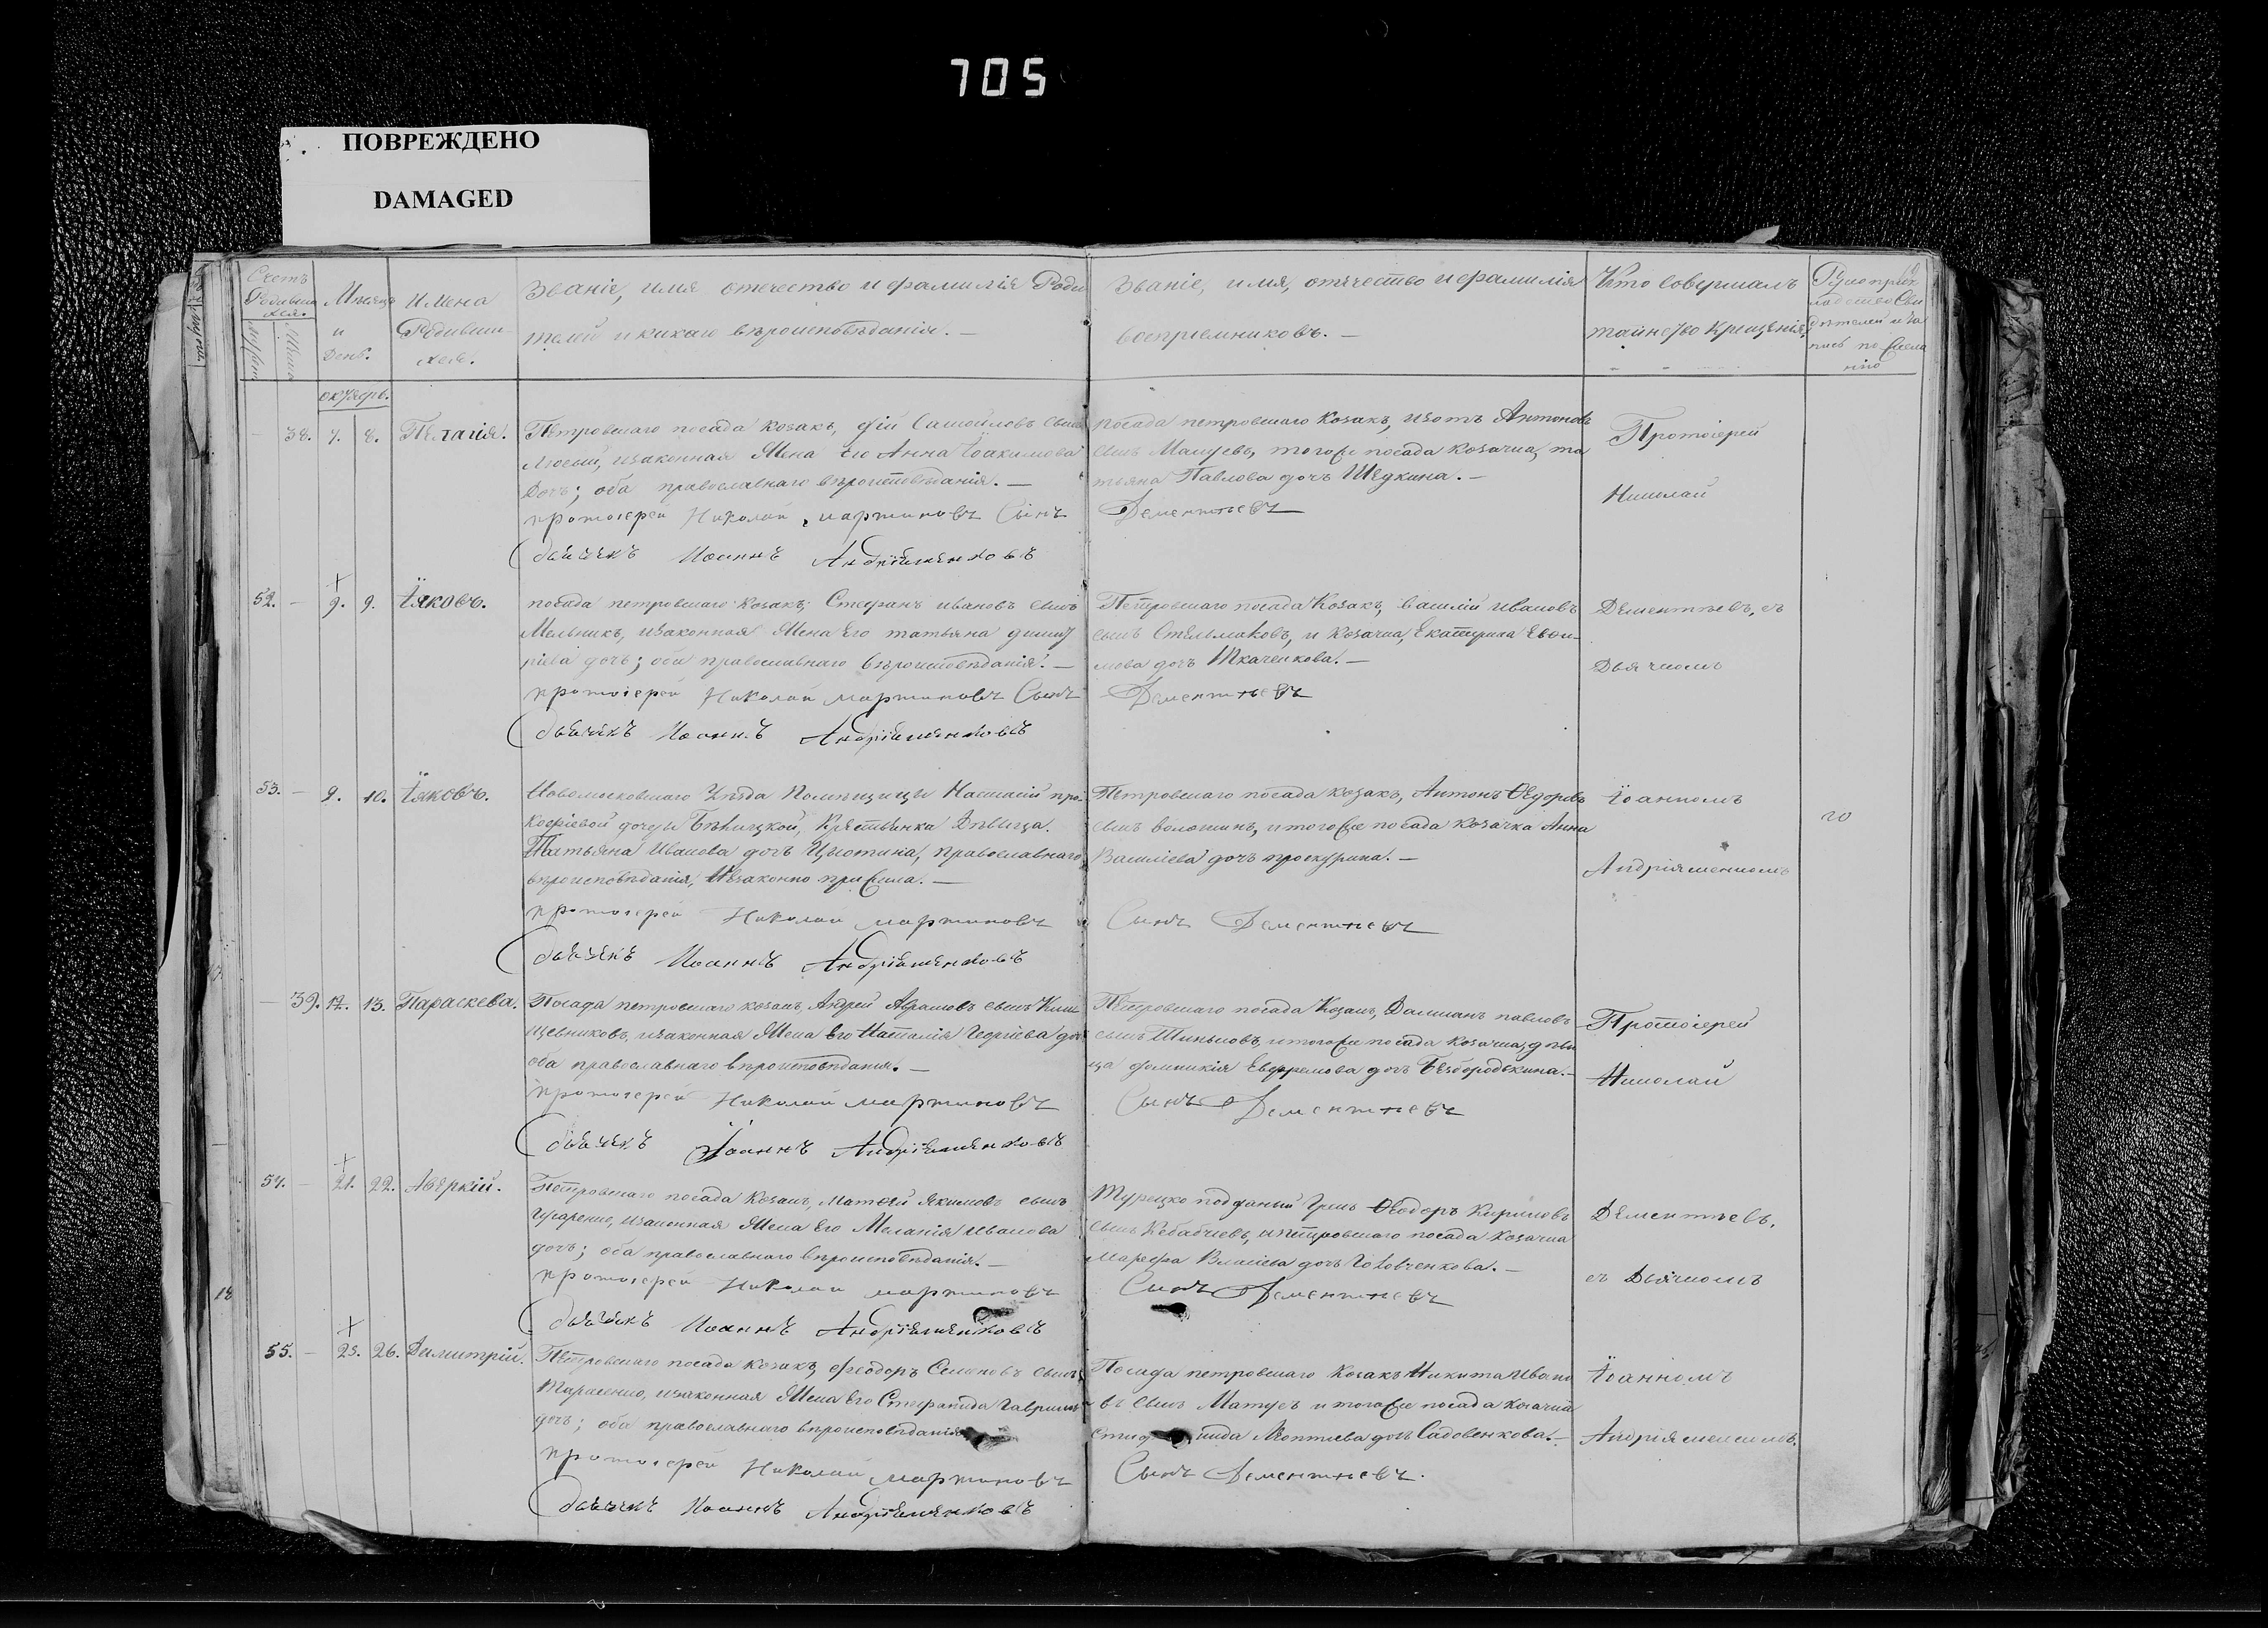 705
ПОВРЕЖДЕНО
DAMAGED
Счетъ Родивших
ся.
Мѣсяцъ
и
День.
Имена
Родивши
хся.
Званіе, имя отечество и фамилія Роди
телей и какаго вѣроисповѣданія. —
Званіе, имя, отечество и фамилія
воспріемниковъ. —
Кто совершалъ
таинство крещенія,
октябрь.
38. 7. 8. Пелагія.
Петровскаго посада козакъ, Самойловъ сынъ
изаконная Жена его Анна Іоакимова
Дочь; оба православнаго вѣроисповѣданія. —
протоіерей Николай мартиновъ Сынъ
дьячекъ Иоаннъ Андріяшенковъ
посада петровскаго Козакъ, изотъ Антоновъ
сынъ Мацуевъ, тогоже посада козачка, та
тьяна Павлова дочь Шедкина. —
Дементьевъ
Протоіерей
Николай
52. — 9. 9. Іяковъ.
посада петровскаго козакъ, Стефанъ ивановъ сынъ
Мельникъ, изаконная Жена Его татьяна димит
ріева дочь; оба православнаго вѣроисповѣданія. —
протоіерей Николай мартиновъ Сынъ
дьячекъ Иоаннъ Андріяшенковъ
Петровскаго посада Козакъ, василій ивановъ
сынъ Стельмаховъ, и козачка, Екатерина Евѳи-
мова дочь Ткаченкова. —
Дементьевъ
Дементьевъ, съ
Дьячкомъ
53. — 9. 10. Іяковъ.
Новомосковскаго Уѣзда Помѣщицы Настасіи про-
кофіевой дочери крестьянка Дѣвица.
Татьяна Иванова дочь православнаго
вѣроисповѣданія, Незаконно прижила. —
протоіерей Николай мартиновъ
дьячекъ Иоаннъ Андріяшенковъ
Петровскаго посада козакъ, Антонъ Ѳедоровъ
сынъ волошинъ, итогоже посада козачка Анна
Василіева дочь проскурина. —
Сынъ Дементьевъ
Іоанномъ
Андріяшенкомъ
20
— 39. 12. 13. Параскева.
Посада петровскаго козакъ, Андрей Аврамовъ сынъ
изаконная Жена Его Наталія Георгіева дочь
оба православнаго вѣроисповѣданія. —
протоіерей Николай мартиновъ
дьячекъ Іоаннъ Андріяшенковъ
Петровскаго посада Козакъ, Даміанъ павловъ
сынъ итогоже посада козачка, дѣви
ца домникія Евфремова дочь Безбородькина. —
Сынъ Дементьевъ
Протоіерей
Николай
54. — 21. 22. Аверкій.
Петровскаго посада Козакъ, Матѳей Якимовъ сынъ
изаконная Жена Его Меланія Иванова
дочь; оба православнаго вѣроисповѣданія. —
протоіерей Николай мартиновъ
дьячекъ Иоаннъ Андріяшенковъ
Турецко подданый Грекъ Ѳеодоръ Кириловъ
сынъ Кебабчіевъ, ипетровскаго посада козачка
Марфа Власіева дочь Головченкова. —
Сынъ Дементьевъ
Дементьевъ.
съ Дьячкомъ
18
55. — 25. 26. Димитрій.
Петровскаго посада козакъ, Феодоръ Семеновъ сынъ
Тарасенко, изаконная Жена Его Стефанида Гаврилова
дочь; оба православнаго вѣроисповѣданія
протоіерей Николай мартиновъ
дьячекъ Иоаннъ Андріяшенковъ
Посада петровскаго Козакъ Никита Ивано
въ сынъ Мацуевъ итогоже посада козачка
нида Леонтіева дочь Садовенкова. —
Сынъ Дементьевъ.
Іоанномъ
Андріяшенкомъ.